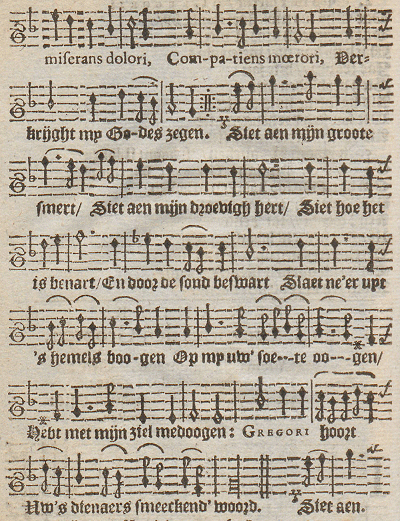 miſerans dolori, Com-pa-tiens mœrori, Ver-
krijght my Go-des zegen. Siet aen mijn groote
ſmert/ Siet aen mijn droevigh hert/ Siet hoe het
is benart/ En door de ſond beſwart Slaet ne'er uyt
's hemels boo-gen Op my uw' ſoe--te oo---gen/
Hebt met mijn ziel medoogen: GREGORI hoort
Uw's dienaers ſmeeckend' woord. Siet aen.